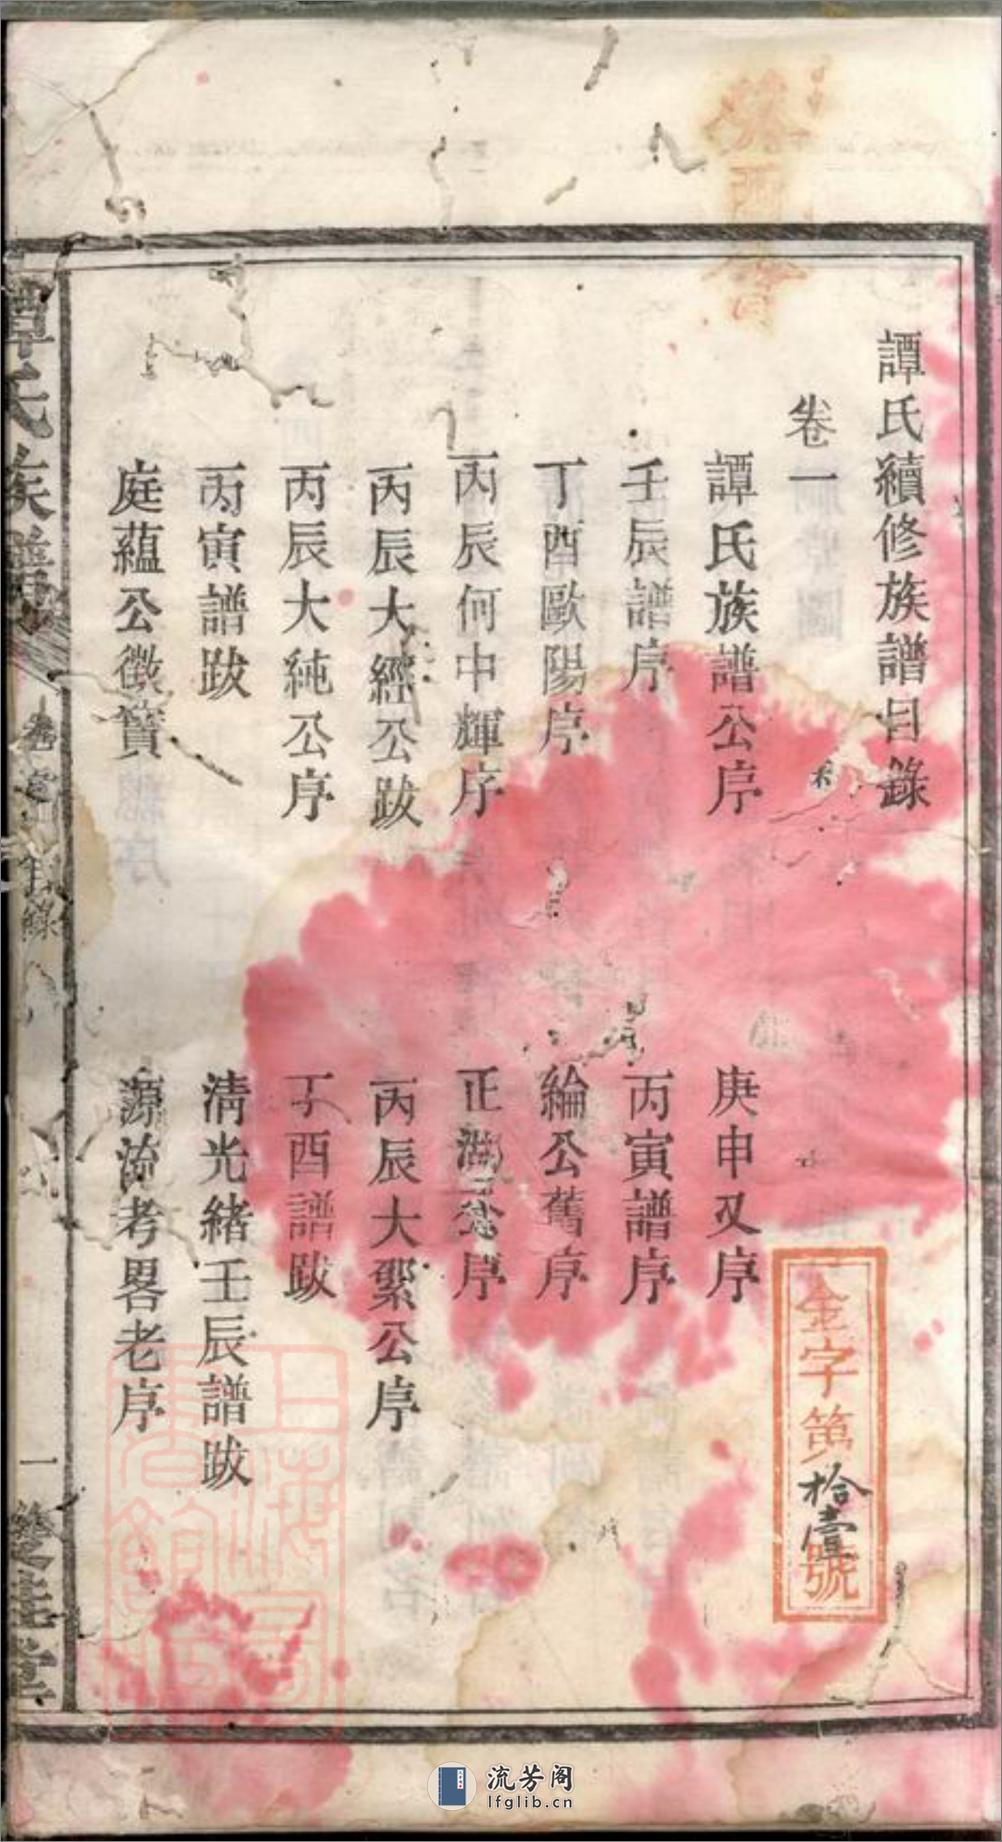 譚氏續修族譜目錄
卷一
譚氏族譜公序
庚申又序
壬辰譜序
丙寅譜序
丁酉歐陽序
綸公舊序
丙辰何中輝序
正湖公序
丙辰大經公跋
丙辰大絜公序
丙辰大純公序
丁酉譜跋
丙寅譜跋
清光緒壬辰譜跋
庭蘊公徵實
源流考畧老序
譚氏族譜
卷壹
目錄
一
堂
金字第拾壹號
上海圖書館藏
流芳阁
lfglib.cn